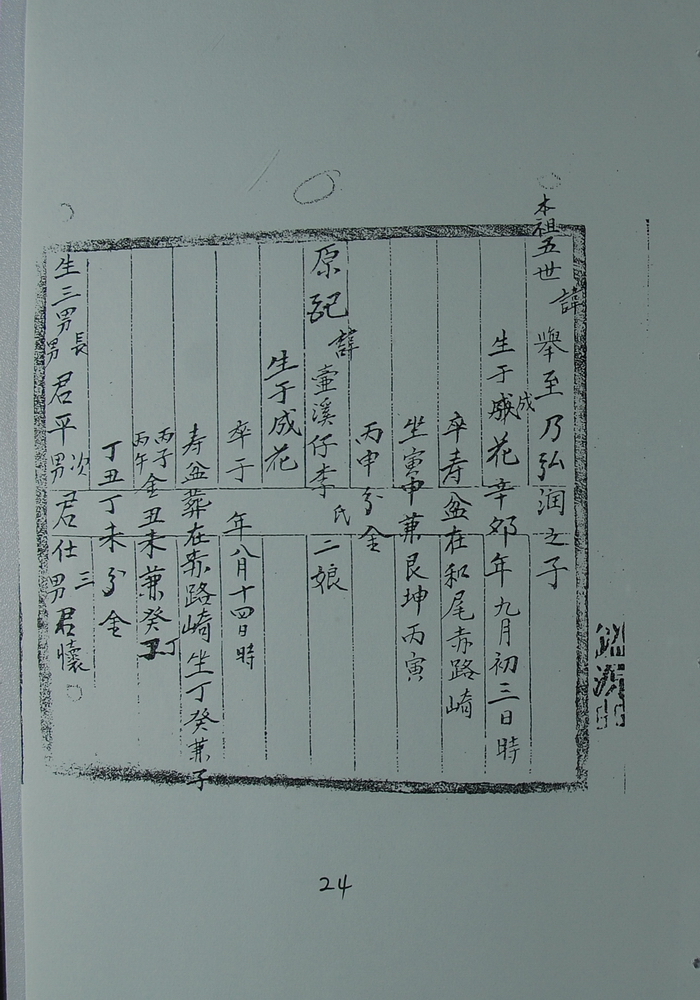 本祖五世諱舉至乃弘润之子
生于成花辛郊年九月初三日時
卒寿盆在和尾赤路崎
坐寅申兼艮坤丙寅
丙申分金
原配諱壷溪仔李氏二娘
生于成花
卒于 年八月十四日時
寿盆葬在赤路崎坐丁癸兼子
丙子丙午金丑未兼癸丁
丁丑丁未分金
生三男長男君平次男君仕三男君懐
24